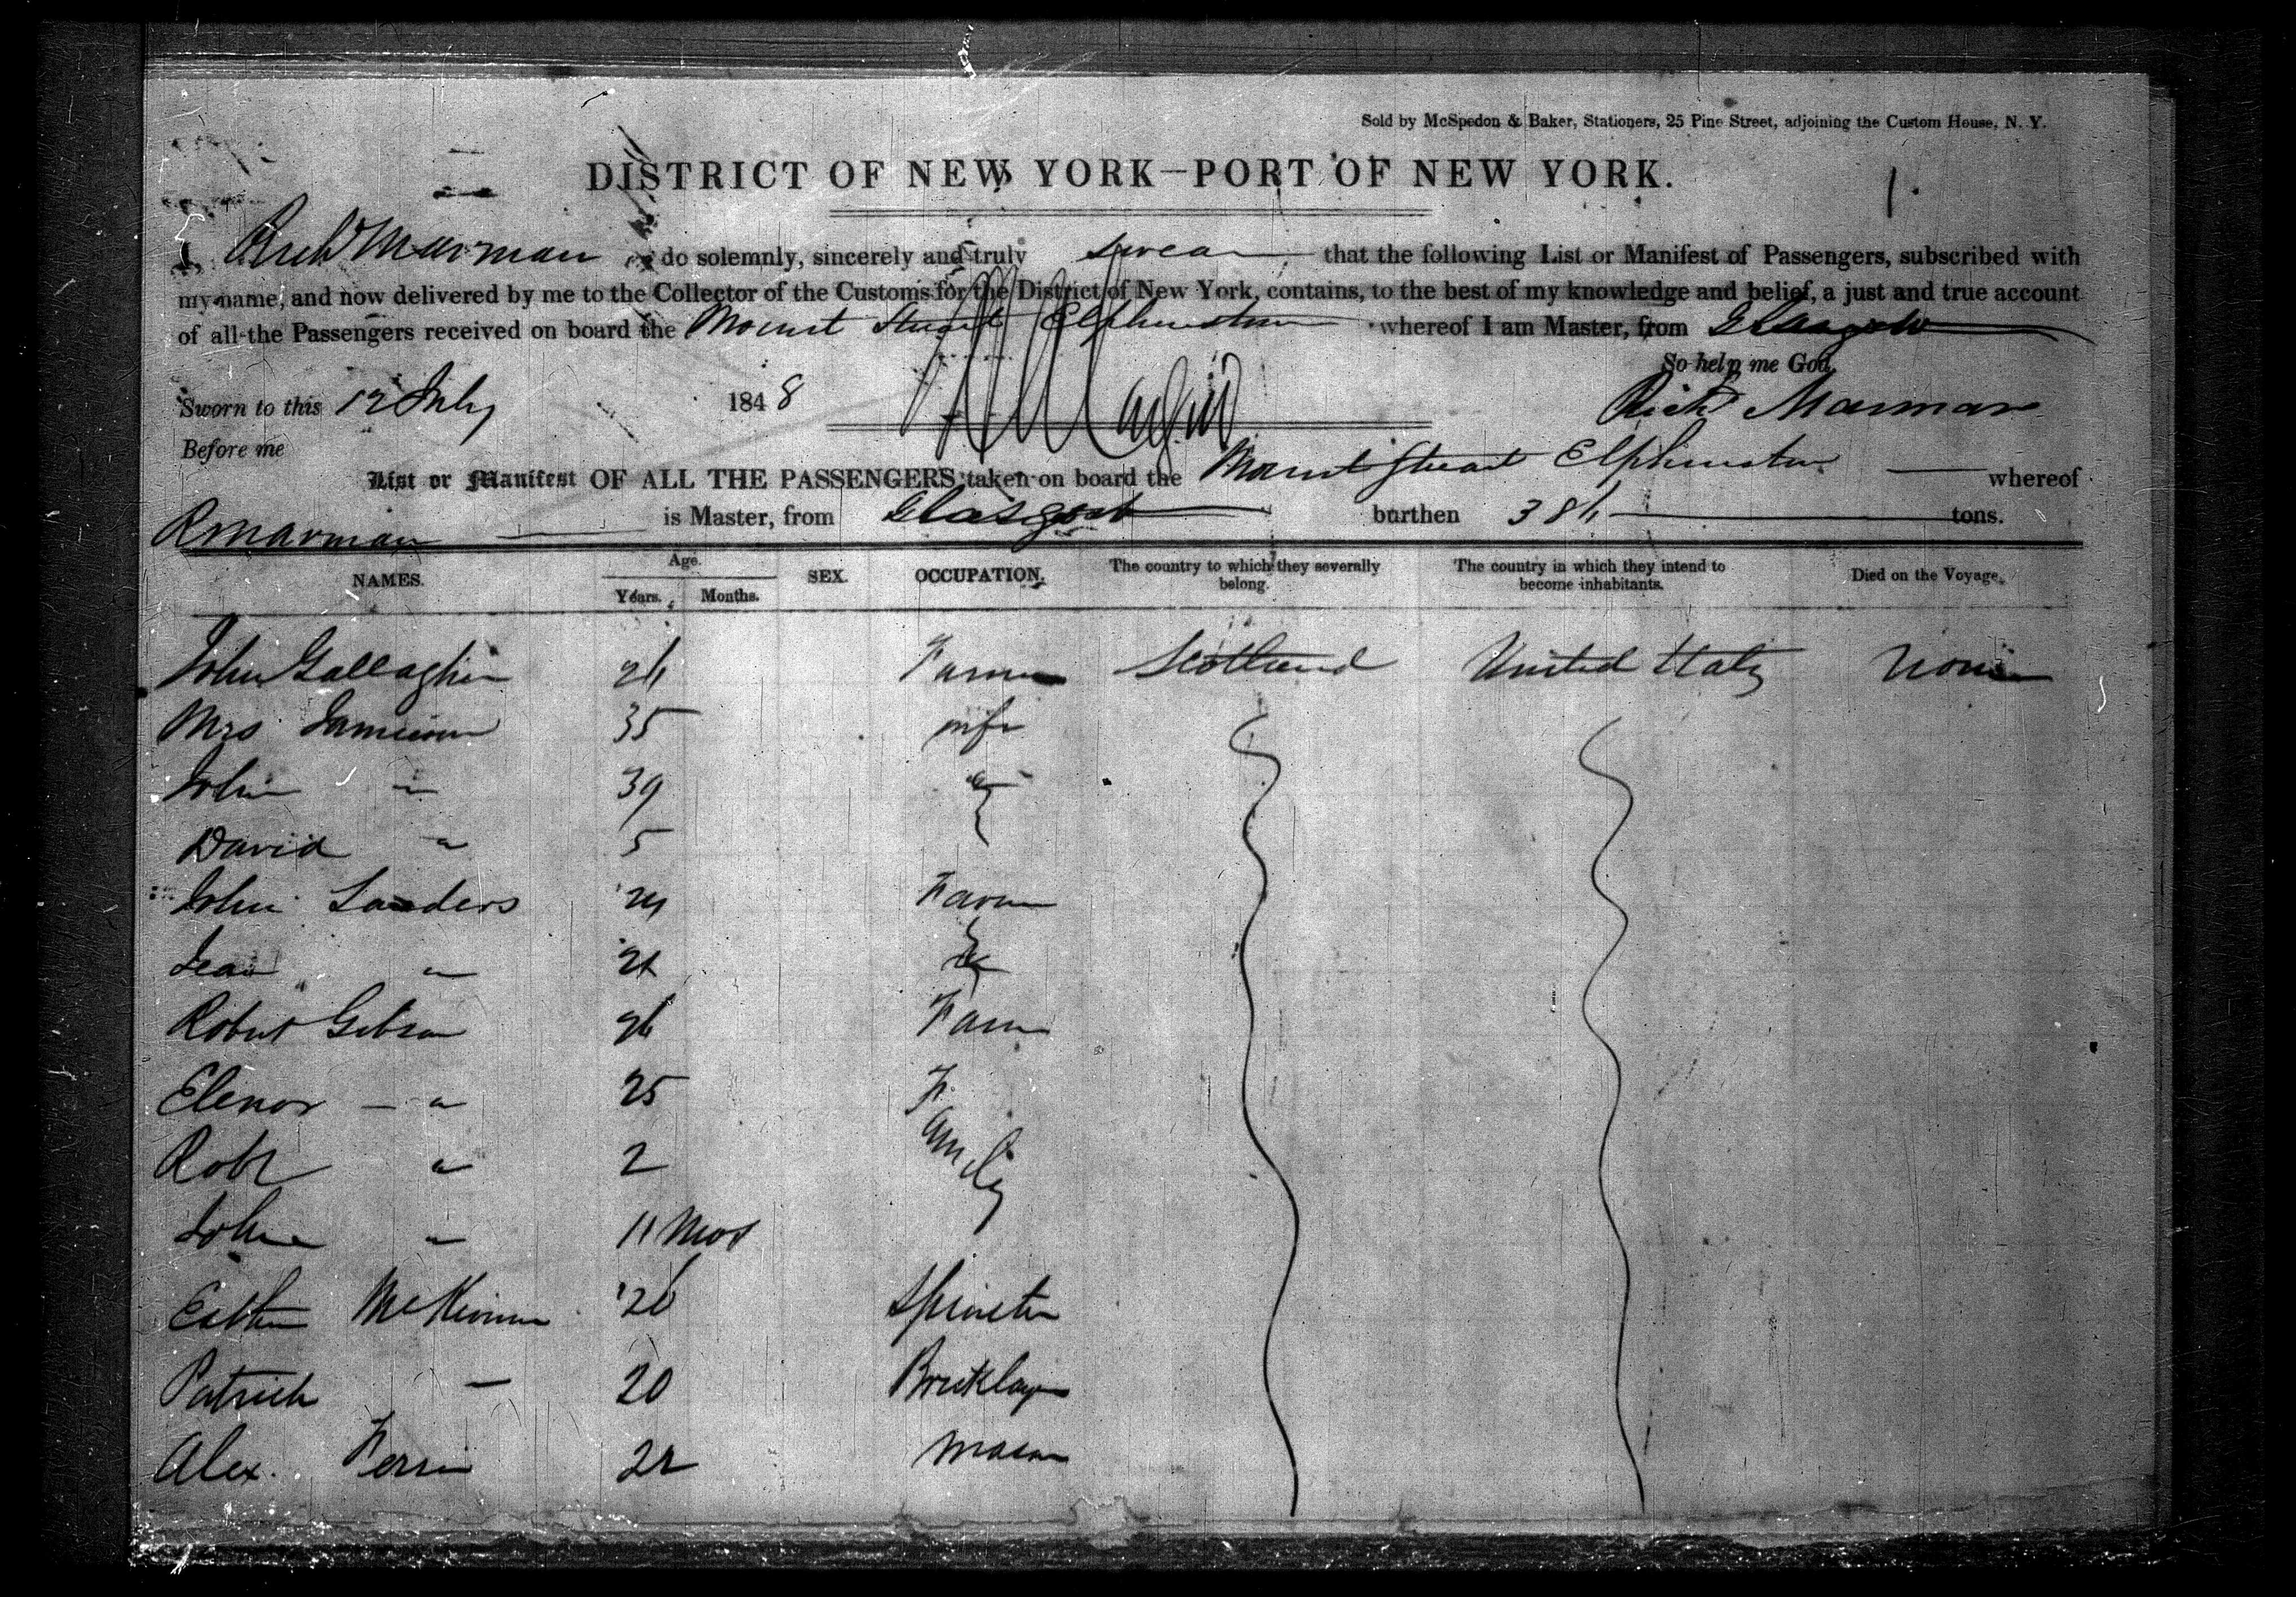 Sold by McSpedon & Baker, Stationers, 25 Pine Street, adjoining the Custom House, N. Y.
DISTRICT OF NEW YORK—PORT OF NEW YORK.
1.
I, Richd Marman do solemnly, sincerely and truly swear that the following List or Manifest of Passengers, subscribed with
my name, and now delivered by me to the Collector of the Customs for the District of New York, contains, to the best of my knowledge and belief, a just and true account
of all the Passengers received on board the Mount Stuart Elphinstone whereof I am Master, from Glasgow
So help me God.
Sworn to this 12 July 1848 Richd Marman
Before me
List or Manifest OF ALL THE PASSENGERS taken on board the Mount Stuart Elphinston whereof
R Marman is Master, from Glasgow burthen tons.
NAMES. Age. Years. Months. SEX. OCCUPATION. The country to which they severally belong. The country in which they intend to become inhabitants. Died on the Voyage.
John Gallagher 26 Farmer Scotland United States None
Mrs Jamieson 35 wife
John " 39 "
David " 5
John Sanders 24 Farmer
Jean " 21
Robert Gibson 26 Farmer
Elenor — " 25 Family
Robt " 2
John " 11 Mos
McKinnon 26 Spinster
Patrick — 20 Bricklayer
Alex. Ferrie 22 Mason